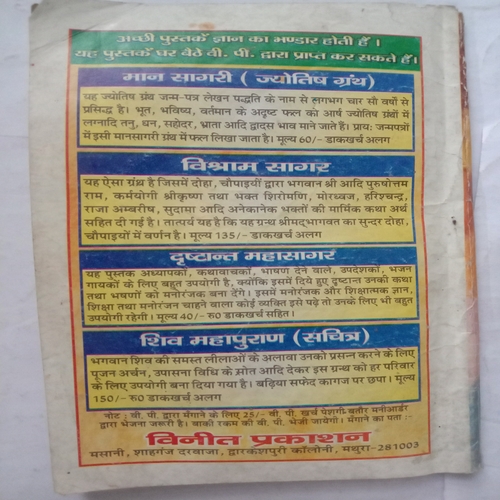 अच्छी पुस्तकें ज्ञान का भण्डार होती हैं ।
यह पुस्तकें घर बैठे वी. पी. द्वारा प्राप्त कर सकते हैं।
मान सागरी ( ज्योतिष ग्रंथ)
यह ज्योतिष ग्रंथ जन्म-पत्र लेखन पद्धति के नाम से लगभग चार सौ वर्षों से
प्रसिद्ध है। भूत, भविष्य, वर्तमान के अदृष्ट फल को आर्ष ज्योतिष ग्रंथों में
लग्नादि तनु, धन, सहोदर, भ्राता आदि द्वादस भाव माने जाते है। प्रायः जन्मपत्रों
में इसी मानसागरी ग्रंथ में फल लिखा जाता है। मूल्य 60/- डाकखर्च अलग
विश्राम सागर
यह ऐसा ग्रंथ है जिसमें दोहा, चौपाइयीं द्वारा भगवान श्री आदि पुरुषोत्तम
राम, कर्मयोगी श्रीकृष्ण तथा भक्त शिरोमणि, मोरध्वज, हरिश्चन्द्र,
राजा अम्बरीष, सुदामा आदि अनेकानेक भक्तों की मार्मिक कथा अर्थ
सहित दी गई है। तात्पर्य यह है कि यह ग्रन्थ श्रीमद्भागवत का सुन्दर दोहा,
चौपाइयों में वर्णन है। मूल्य 135/- डाकखर्च अलग
दृष्टान्त महासागर
यह पुस्तक अध्यापकों, कथावाचकों, भाषण देने वाले, उपदेशकों, भजन
गायकों के लिए बहुत उपयोगी है, क्योंकि इसमें दिये हुए दृष्टान्त उनकी कथा
तथा भषणों को मनोरंजक बना देंगे। इसमें मनोरंजक और शिक्षात्मक ज्ञान,
शिक्षा तथा मनोरंजन चाहने वाला कोई व्यक्ति इसे पढ़े तो उनके लिए भी बहुत
उपयोगी रहेगी। मूल्य 40/- रु0 डाकखर्च सहित।
शिव महापुराण (सचित्र)
भगवान शिव की समस्त लीलाओं के अलावा उनको प्रसन्न करने के लिए
पूजन अर्चन, उपासना विधि के स्रोत आदि देकर इस ग्रन्थ को हर परिवार
के लिए उपयोगी बना दिया गया है। बढ़िया सफेद कागज पर छपा। मूल्य
150/- रु0 डाकखर्च अलग
नोट : वी. पी. द्वारा मँगाने के लिए 25/- वी. पी. खर्च पेशगी बतौर मनीआर्डर
द्वारा भेजना जरूरी है। बाकी रकम की वी. पी. भेजी जायेगी। मँगाने का पता :-
विनीत प्रकाशन
मसानी, शाहगंज दरवाजा, द्वारकेशपुरी कॉलोनी, मथुरा-281003